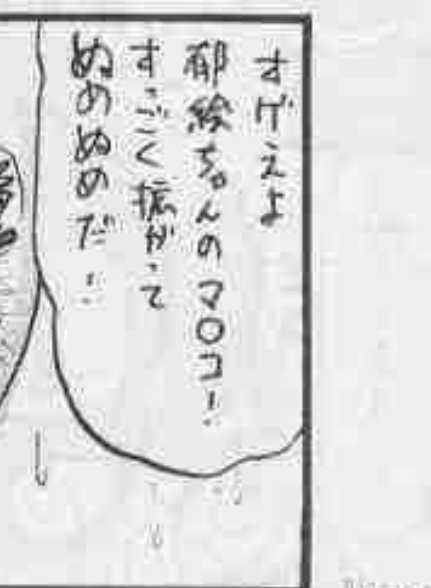 すげえよ
郁絵ちゃんのマ〇コ!
すっごく拡がって
ぬめぬめだ!